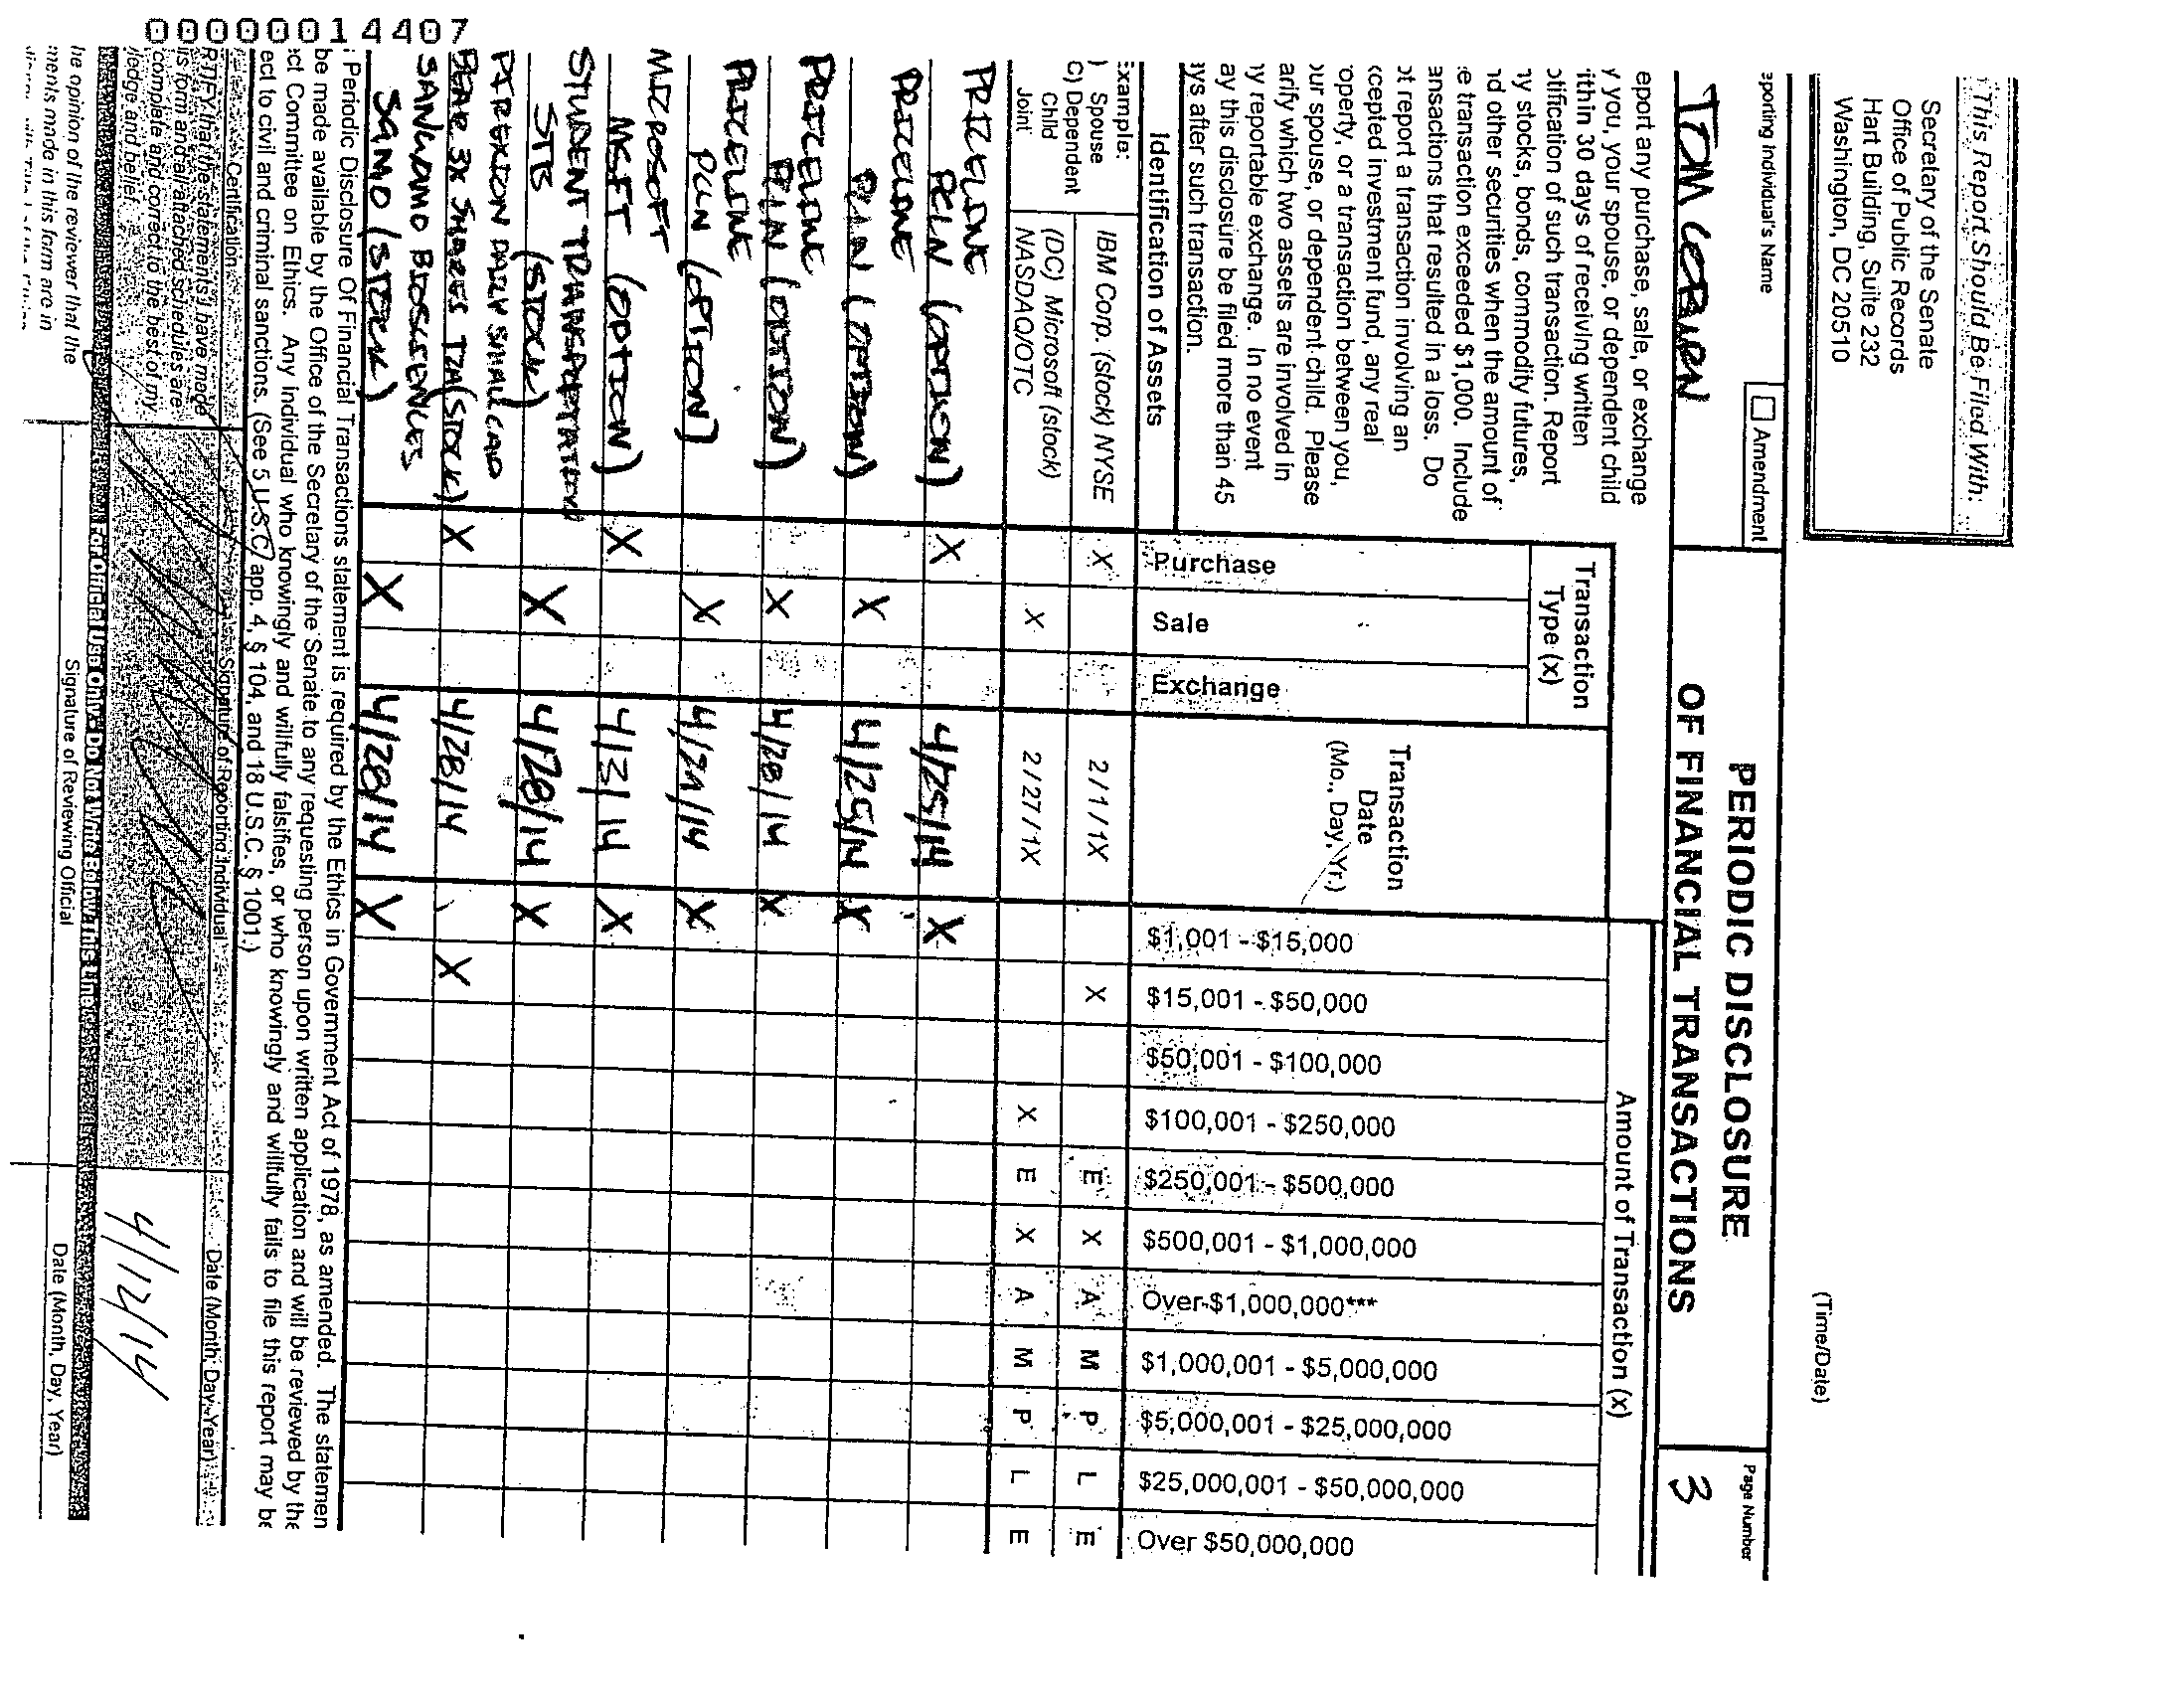 (Time/Date)
This Report Should Be Filed With:
Secretary of the Senate
Office of Public Records
Hart Building, Suite 232
Washington, DC 20510
eporting Individual's Name
TOM COBURN
Amendment
PERIODIC DISCLOSURE
OF FINANCIAL TRANSACTIONS
Page Number
3
eport any purchase, sale, or exchange
y you, your spouse, or dependent child
ithin 30 days of receiving written
otification of such transaction. Report
ny stocks, bonds, commodity futures,
nd other securities when the amount of
e transaction exceeded $1,000. Include
ansactions that resulted in a loss. Do
ot report a transaction involving an
xcepted investment fund, any real
operty, or a transaction between you,
our spouse, or dependent child. Please
arify which two assets are involved in
ny reportable exchange. In no event
ay this disclosure be filed more than 45
ays after such transaction.
Identification of Assets
Transaction
Type (x)
Purchase
Sale
Exchange
Transaction
Date
(Mo., Day, Yr.)
Amount of Transaction (x)
$1,001 - $15,000
$15,001 - $50,000
$50,001 - $100,000
$100,001 - $250,000
$250,001 - $500,000
$500,001 - $1,000,000
Over $1,000,000***
$1,000,001 - $5,000,000
$5,000,001 - $25,000,000
$25,000,001 - $50,000,000
Over $50,000,000
Example:
) Spouse
C) Dependent
Child
Joint
IBM Corp. (stock) NYSE X 2/1/1X X E X A M P L E
(DC) Microsoft (stock)
NASDAQ/OTC X 2/27/1X X E X A M P L E
PRICELINE
PCLN (OPTION) X 4/25/14 X
PRICELINE
(OPTION) X 4/25/14 X
PRICELINE
(OPTION) X 4/28/14 X
PRICELINE
(OPTION) X X
MICROSOFT
MSFT (OPTION) X X
STUDENT TRANSPORTATION
STB (STOCK) X 4/28/14 X
DIREXION DAILY SMALL CAP
BEAR 3X SHARES TZA (STOCK) X 4/28/14 X
SANGAMO BIOSCIENCES
SGMO (STOCK) X 4/28/14 X
Periodic Disclosure Of Financial Transactions statement is required by the Ethics in Government Act of 1978, as amended. The statemen
be made available by the Office of the Secretary of the Senate to any requesting person upon written application and will be reviewed by the
ct Committee on Ethics. Any individual who knowingly and willfully falsifies, or who knowingly and willfully fails to file this report may be
ect to civil and criminal sanctions. (See 5 U.S.C. app. 4, § 104, and 18 U.S.C. § 1001.)
Certification
Signature of Reporting Individual
Date (Month, Day, Year)
RTIFY that the statements I have made
is form and all attached schedules are
complete and correct to the best of my
ledge and belief.
4/12/14
For Official Use Only - Do Not Write Below This Line
he opinion of the reviewer that the
ments made in this form are in
Signature of Reviewing Official
Date (Month, Day, Year)
0000014407